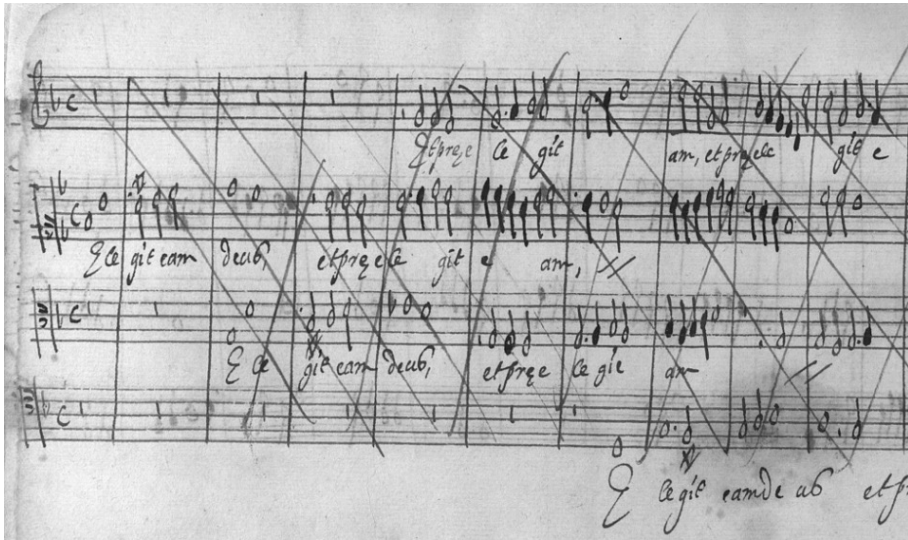 Et pręe le git am, et pręele git e
E le git eam deus, et pręe le git e am,
E le git eam deus, et pręe le gie am
E le git eam de us et pr